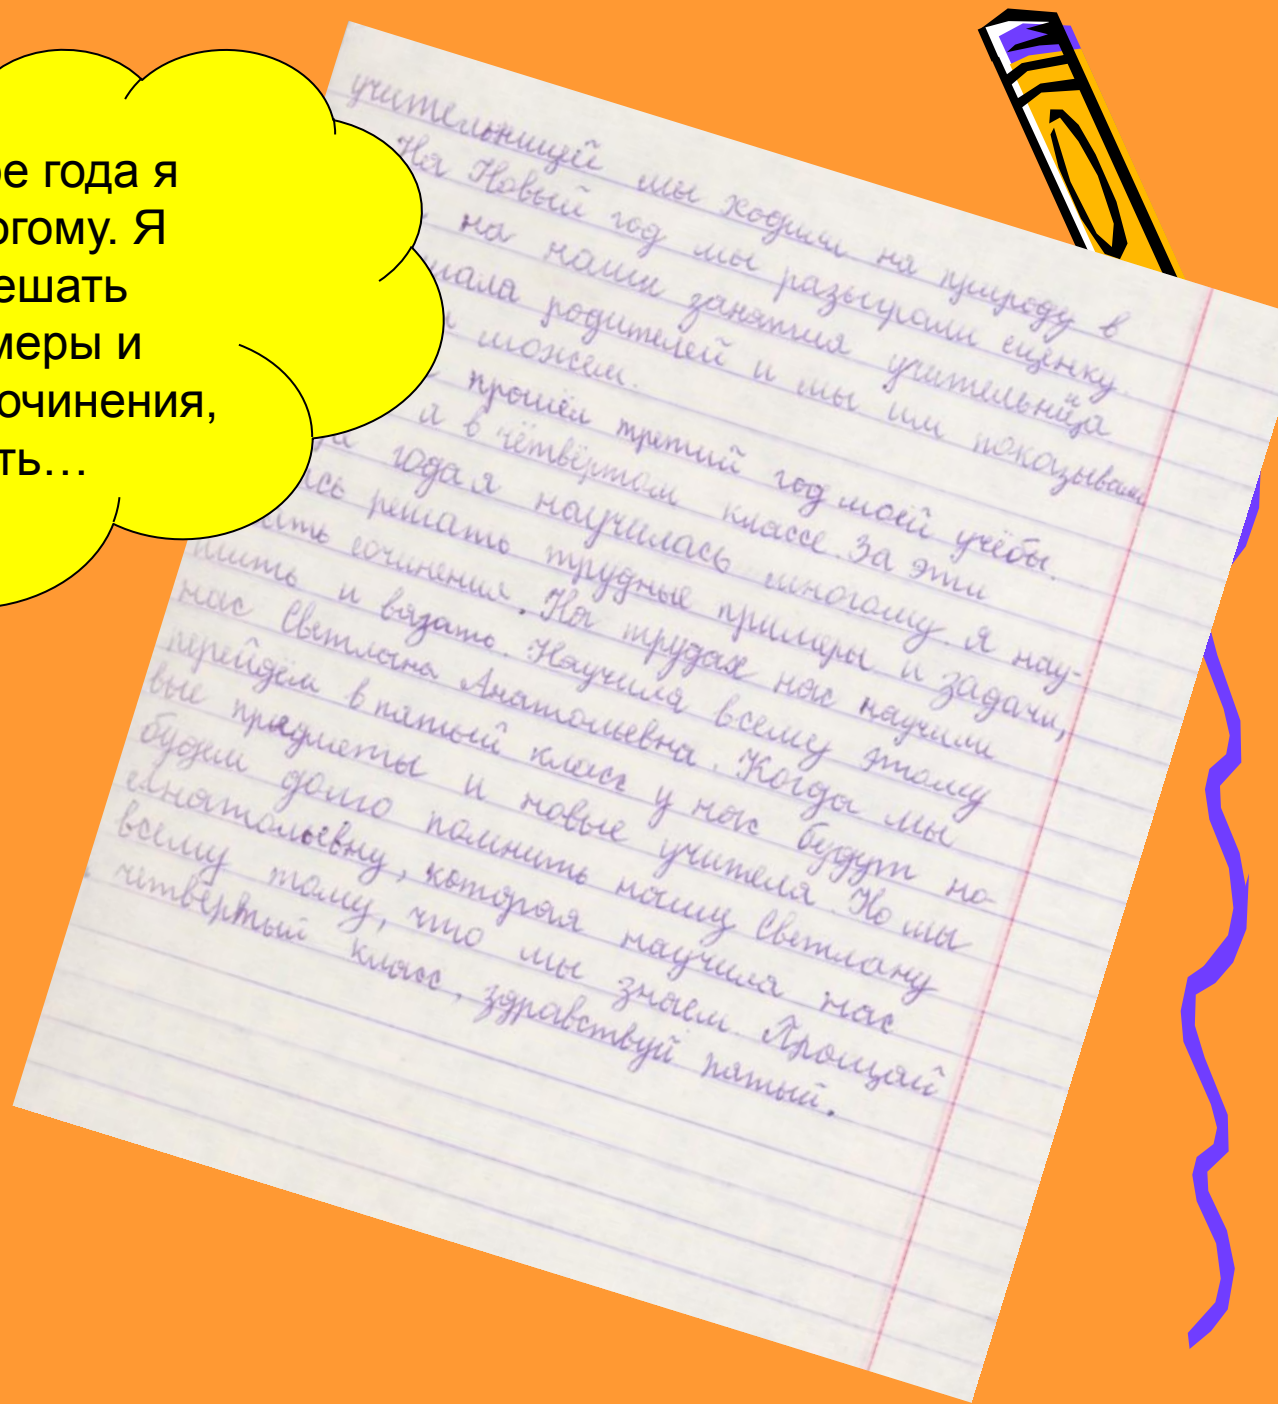 ре года я
огому. Я
ешать
меры и
очинения,
ть...
учительницей мы ходили на природу в
На Новый год мы разыграли сценку.
на наши занятия учительница
шала родителей и мы им показывали
можем.
прошёл третий год моей учёбы.
я в чётвёртом классе. За эти
года я научилась многому. Я нау-
сь решать трудные примеры и задачи,
сочинения. На трудах нас научили
шить и вязать. Научила всему этому
нас Светлана Анатольевна. Когда мы
перейдём в пятый класс у нас будут но-
вые предметы и новые учителя. Но мы
будем долго помнить нашу Светлану
Анатольевну, которая научила нас
всему тому, что мы знаем. Прощай
четвёртый класс, здравствуй пятый.